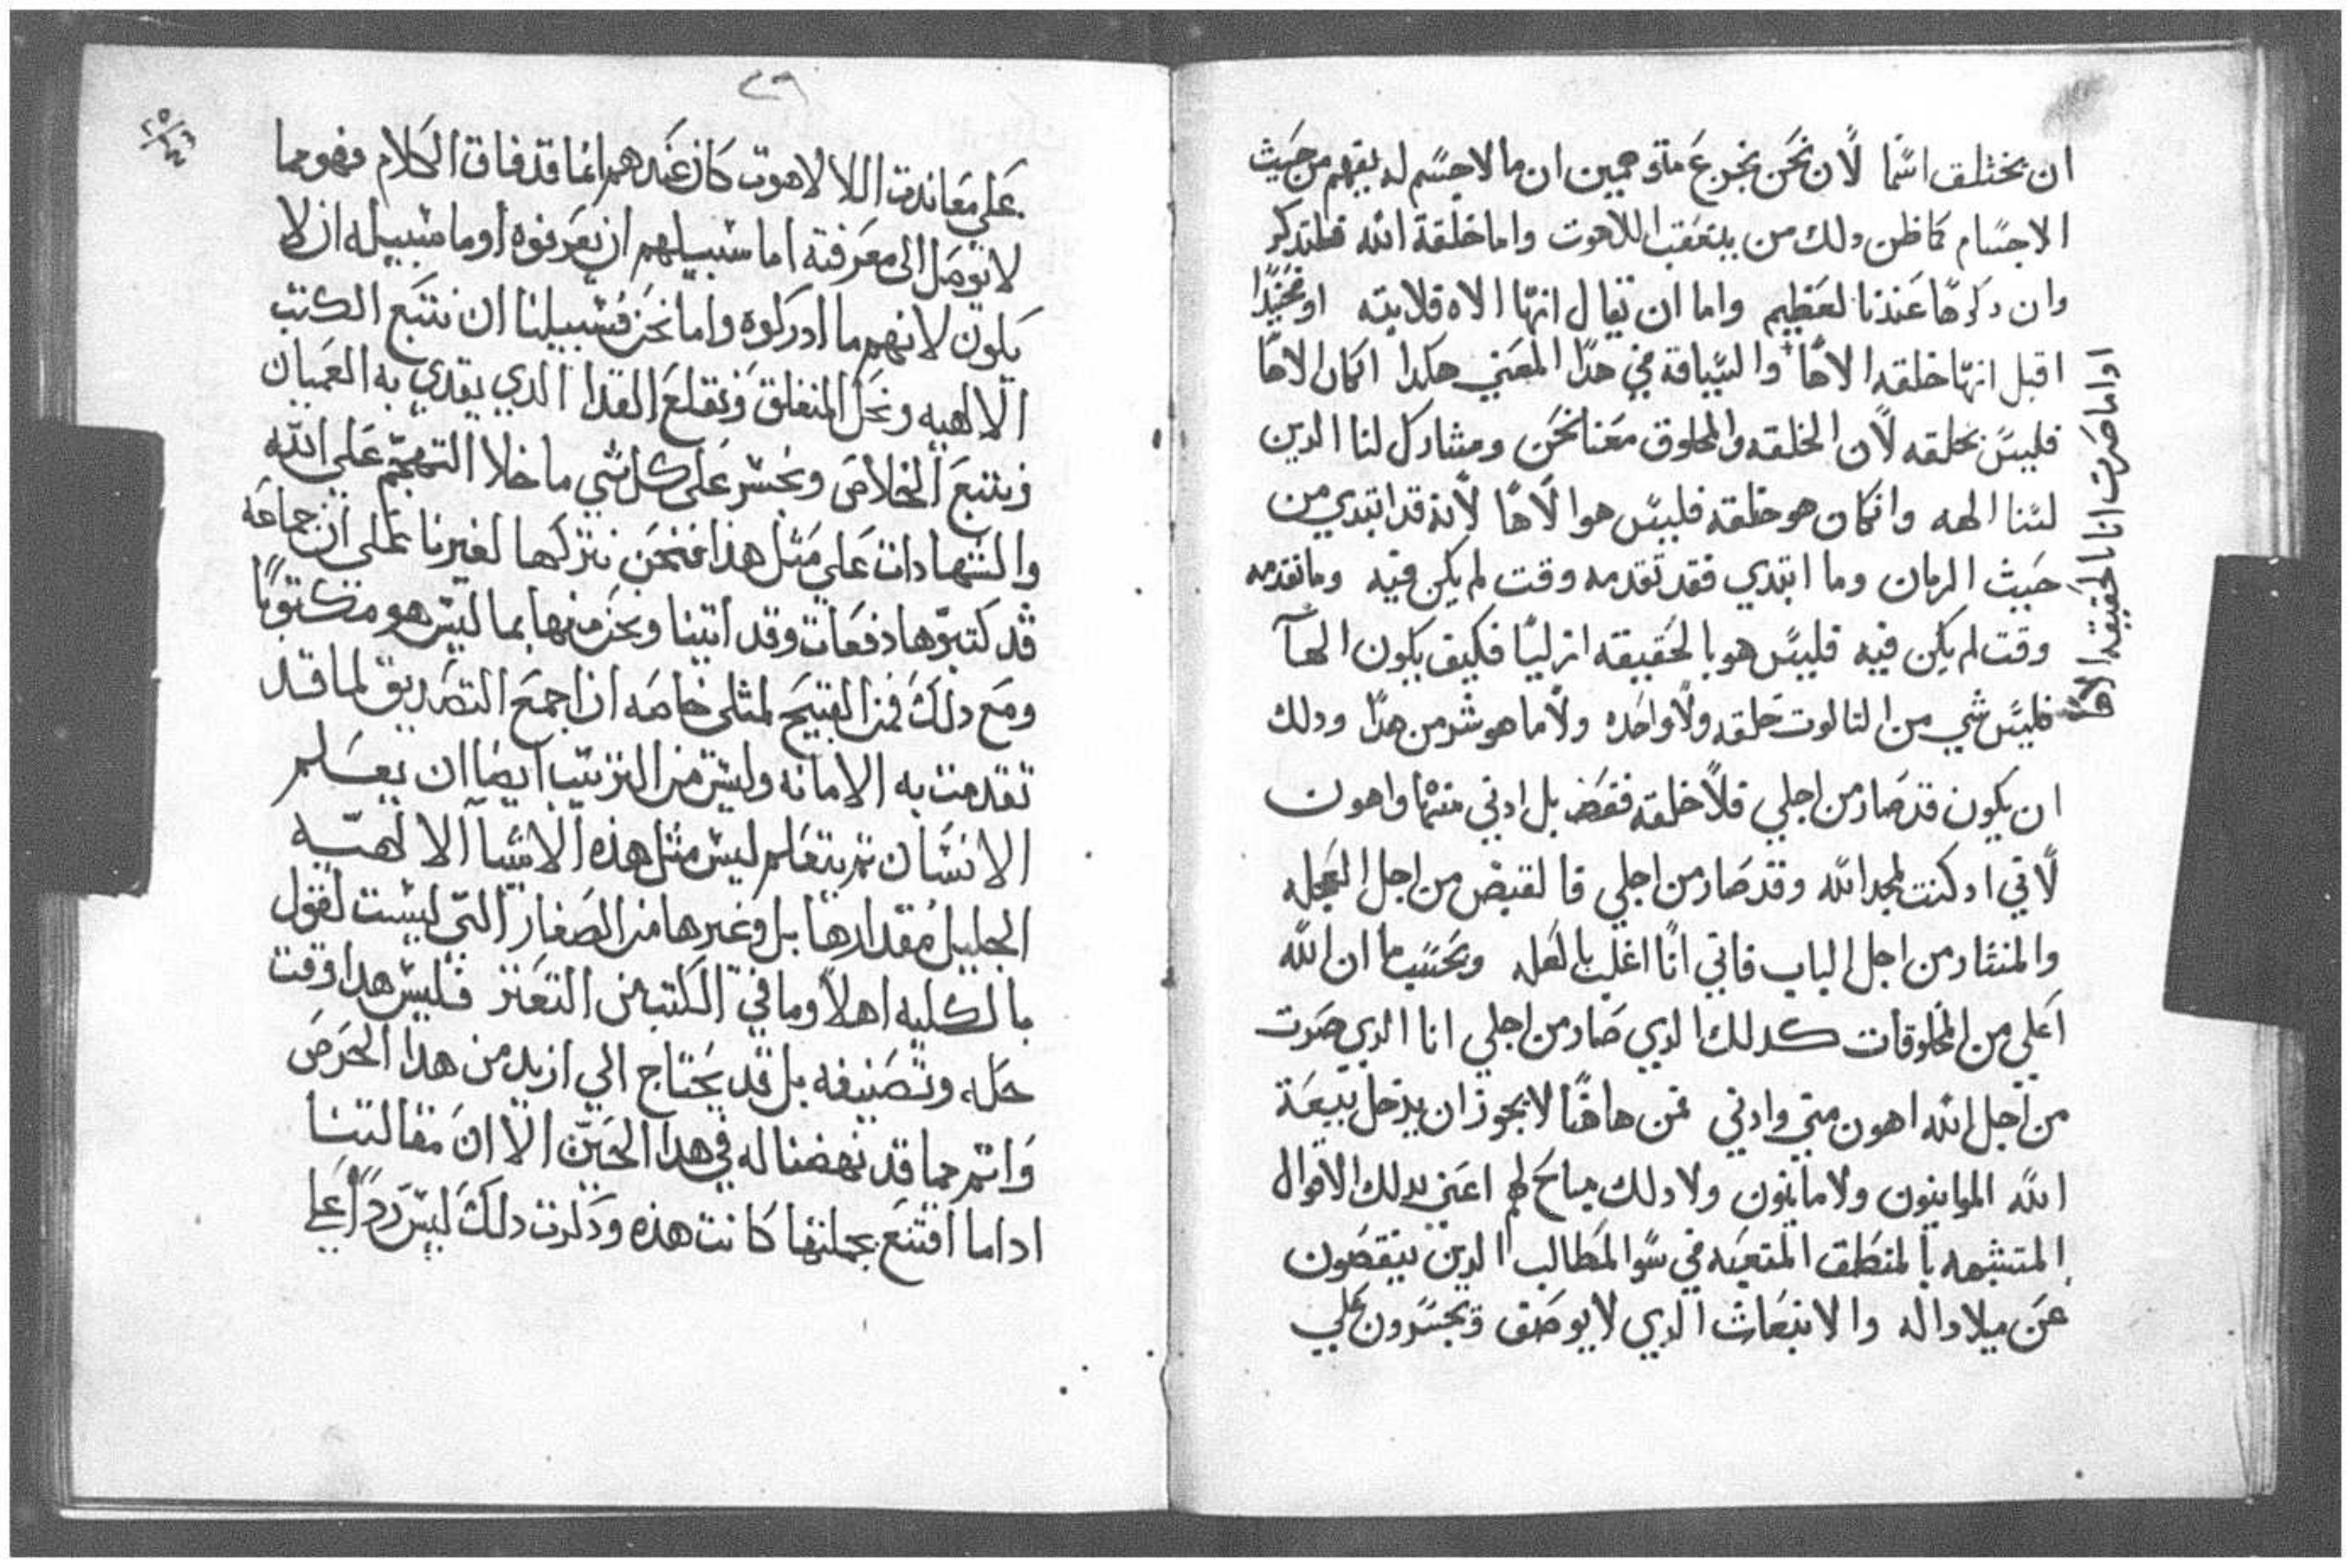 ان يختلف اسما لان نحن نجزع متوهمين ان مالا جسم له يفهم من حيث
الاجسام كما ظن دلك من يتعقب اللاهوت واما خلقة الله فلتدكر
وان دكرها عندنا لعظيم واما ان تقال انها الاه فلا بته او
اقبل انها خلقه الاها والسياقة في هدا المعني هكدا اكان الاها
فليس بخلقه لان الخلقه والمخلوق معنا نحن ومشارك لنا الدين
لسنا الهه وانكان هو خلقه فليس هو الاها لانه قد ابتدي من
حيث الزمان وما ابتدي فقد تقدمه وقت لم يكن فيه وما تقدمه
وقت لم يكن فيه فليس هو بالحقيقه ازليا فكيف يكون الها
فليس شي من التالوت خلقه ولا واحده ولا ما هو شر من هدا ودلك
ان يكون قد صار من اجلي فلا خلقه فقط بل ادني منها واهون
لاني اد كنت لمجد الله وقد صار من اجلي فا لقبض من اجل العجله
والمنشار من اجل الباب فاني انا اغلب بالعله وبحسب ما ان الله
اعلي من المخلوقات كدلك الدي صار من اجلي انا الدي صرت
من اجل الله اهون مني وادني فمن هاهنا لا يجوز ان يدخل بيعة
الله الموابيون ولا مانيون ولا دلك مباح لهم اعني بدلك الاقوال
المتشبهه بالمنطق المتعبه في سو المطالب الدين ينقصون
عن ميلاد اله والانبعاث الدي لا يوصف ويجسرون علي
او اما صرت انا بالحقيقه الاها
٢٦
علي معاندت اللالاهوت كان عندهم انما قد فاق الكلام فهو مما
لا توصل الى معرفته اما سبيلهم ان يعرفوه اوما سبيله ان لا
يكون لانهم ما ادركوه واما نحن فسبيلنا ان نتبع الكتب
الالهيه ونحل المنغلق ونقلع القدا الدي يقدي به العميان
ونتبع الخلاص ونجسر على كل شي ما خلا التهجم على الله
والشهادات علي مثل هذا فنحن نتركها لغيرنا على ان جماعه
قد كتبوها دفعات وقد اتينا ونحن منها بما ليس هو مكتوبا
ومع دلك فمن القبيح لمثلي خاصه ان اجمع التصديق لما قد
تقدمت به الامانه وليس من الترتيب ايضا ان يعلم
الانسان ثم يتعلم ليس مثل هذه الاشيا الالهيه
الجليل مقدارها بل وغيرها من الصغار التي ليست لقول
بالكليه اهلا وما في الكتب من التعزز فليس هدا وقت
حله وتصنيفه بل قد يحتاج الي ازيد من هدا الحرص
واتم مما قد نهضنا له في هدا الحين الا ان مقالتنا
اداما اقتنع بجملتها كانت هذه ودكرت دلك ليس ردا علي